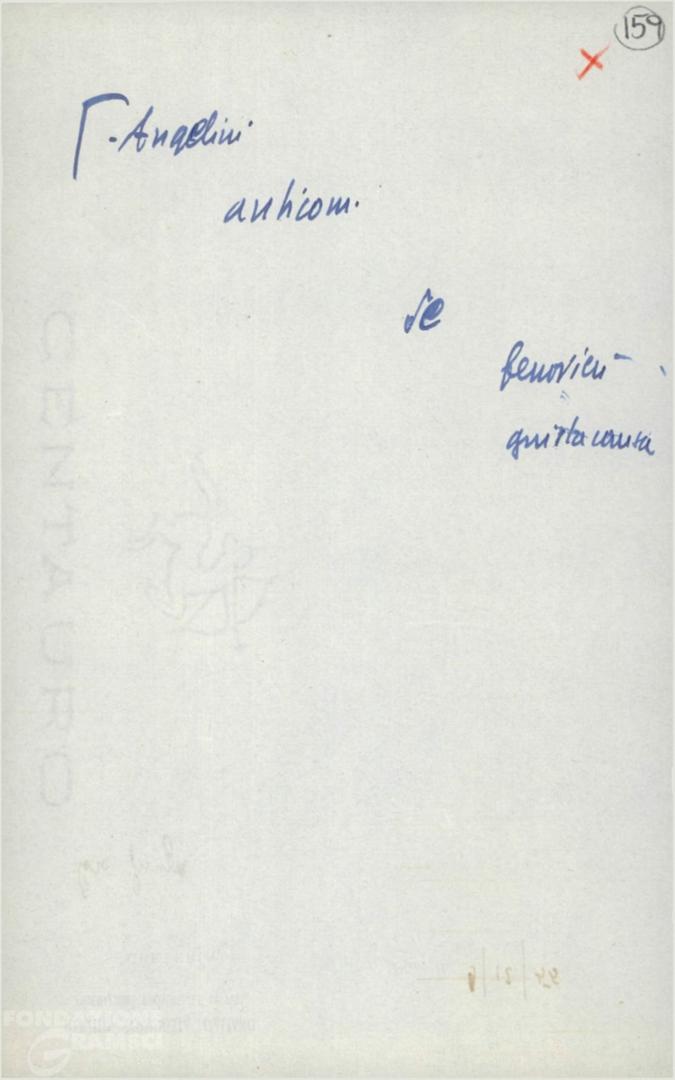 159
- Angelini
anticom.
se
ferrovieri
giusta causa
CENTAURO
FONDAZIONE
GRAMSCI